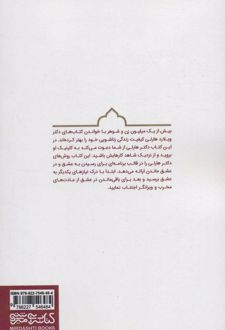 بیش از یک میلیون زن و شوهر با خواندن کتاب‌های دکتر
ویلارد هارلی کیفیت زندگی زناشویی خود را بهتر کرده‌اند. در
این کتاب دکتر هارلی از شما دعوت می‌کند به کلینیک او
بروید و از نزدیک شاهد کارهایش باشید. این کتاب روش‌های
دکتر هارلی را در قالب برنامه‌ای برای رسیدن به عشق و در
عشق ماندن ارائه می‌دهد. ابتدا با درک نیازهای یکدیگر به
عشق برسید و بعد برای باقی‌ماندن در عشق از عادت‌های
مخرب و ویرانگر اجتناب نمایید.
MIRDASHTI BOOKS